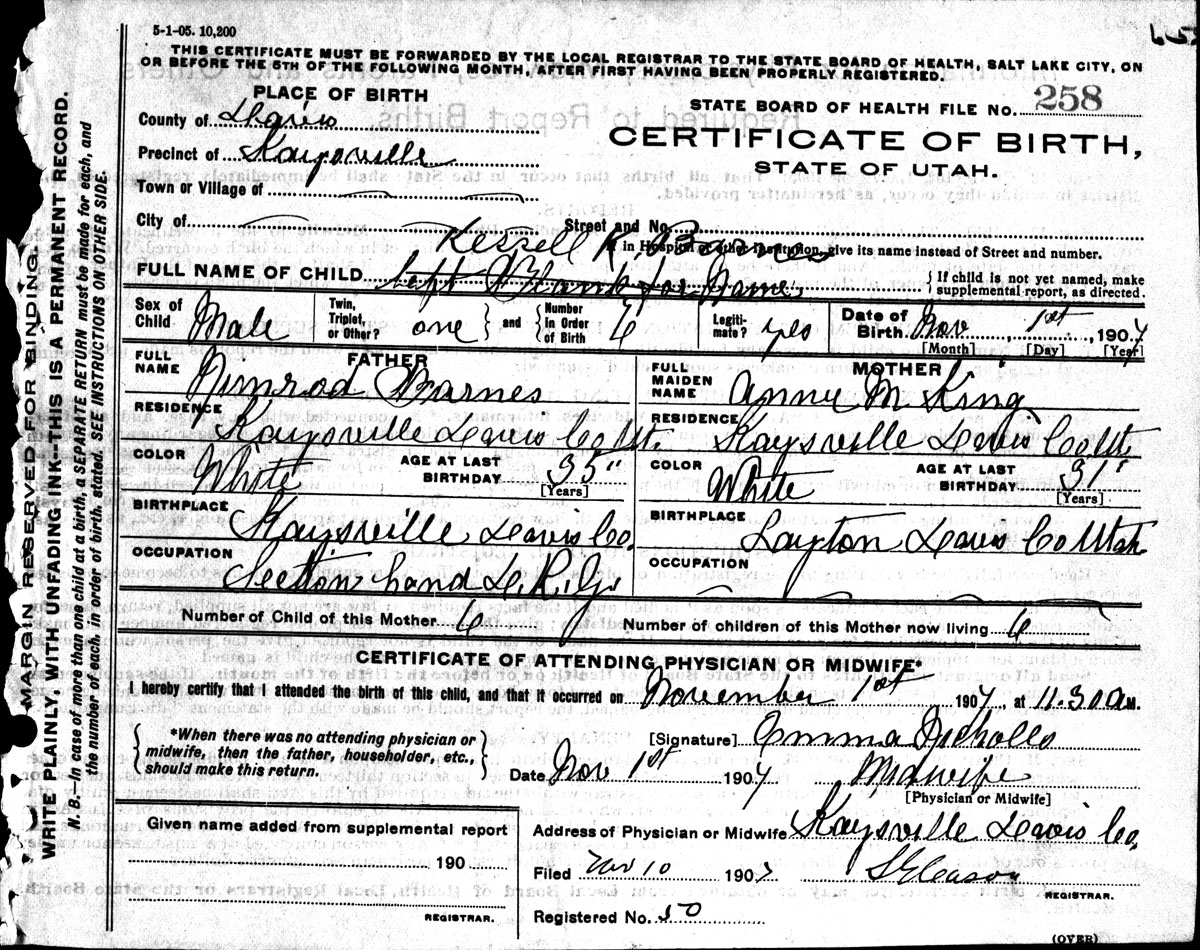 5-1-05. 10,200
THIS CERTIFICATE MUST BE FORWARDED BY THE LOCAL REGISTRAR TO THE STATE BOARD OF HEALTH, SALT LAKE CITY, ON
OR BEFORE THE 5TH OF THE FOLLOWING MONTH, AFTER FIRST HAVING BEEN PROPERLY REGISTERED.
MARGIN RESERVED FOR BINDING.
WRITE PLAINLY, WITH UNFADING INK—THIS IS A PERMANENT RECORD.
N. B.—In case of more than one child at a birth, a SEPARATE RETURN must be made for each, and
the number of each, in order of birth, stated. SEE INSTRUCTIONS ON OTHER SIDE.
PLACE OF BIRTH
STATE BOARD OF HEALTH FILE No. 258
County of Davis
CERTIFICATE OF BIRTH,
Precinct of Kaysville
STATE OF UTAH.
Town or Village of
City of
Street and No.
If in Hospital or other Institution, give its name instead of Street and number.
R. Barnes
FULL NAME OF CHILD left Blank for Name
If child is not yet named, make supplemental report, as directed.
Sex of Child Male Twin, Triplet, or Other? one and Number in Order of Birth 6 Legiti-mate? yes Date of Birth Nov 1st, 1907
[Month] [Day] [Year]
FATHER MOTHER
FULL NAME Nimrod Barnes FULL MAIDEN NAME Annie M King
RESIDENCE Kaysville Davis Co Ut. RESIDENCE Kaysville Davis Co Ut.
COLOR White AGE AT LAST BIRTHDAY 35 [Years] COLOR White AGE AT LAST BIRTHDAY 31 [Years]
BIRTHPLACE Kaysville Davis Co. BIRTHPLACE Layton Davis Co Utah
OCCUPATION Section hand OCCUPATION
Number of Child of this Mother 6 Number of children of this Mother now living 6
CERTIFICATE OF ATTENDING PHYSICIAN OR MIDWIFE*
I hereby certify that I attended the birth of this child, and that it occurred on November 1st 1907, at 11.30 a M.
*When there was no attending physician or
midwife, then the father, householder, etc.,
should make this return.
[Signature] Emma Nicholls
Date Nov 1st 1907 Midwife
[Physician or Midwife]
Given name added from supplemental report
190
REGISTRAR.
Address of Physician or Midwife Kaysville Davis Co.
Filed Nov 10 1907 S Gleason
REGISTRAR.
Registered No. 50
(OVER)